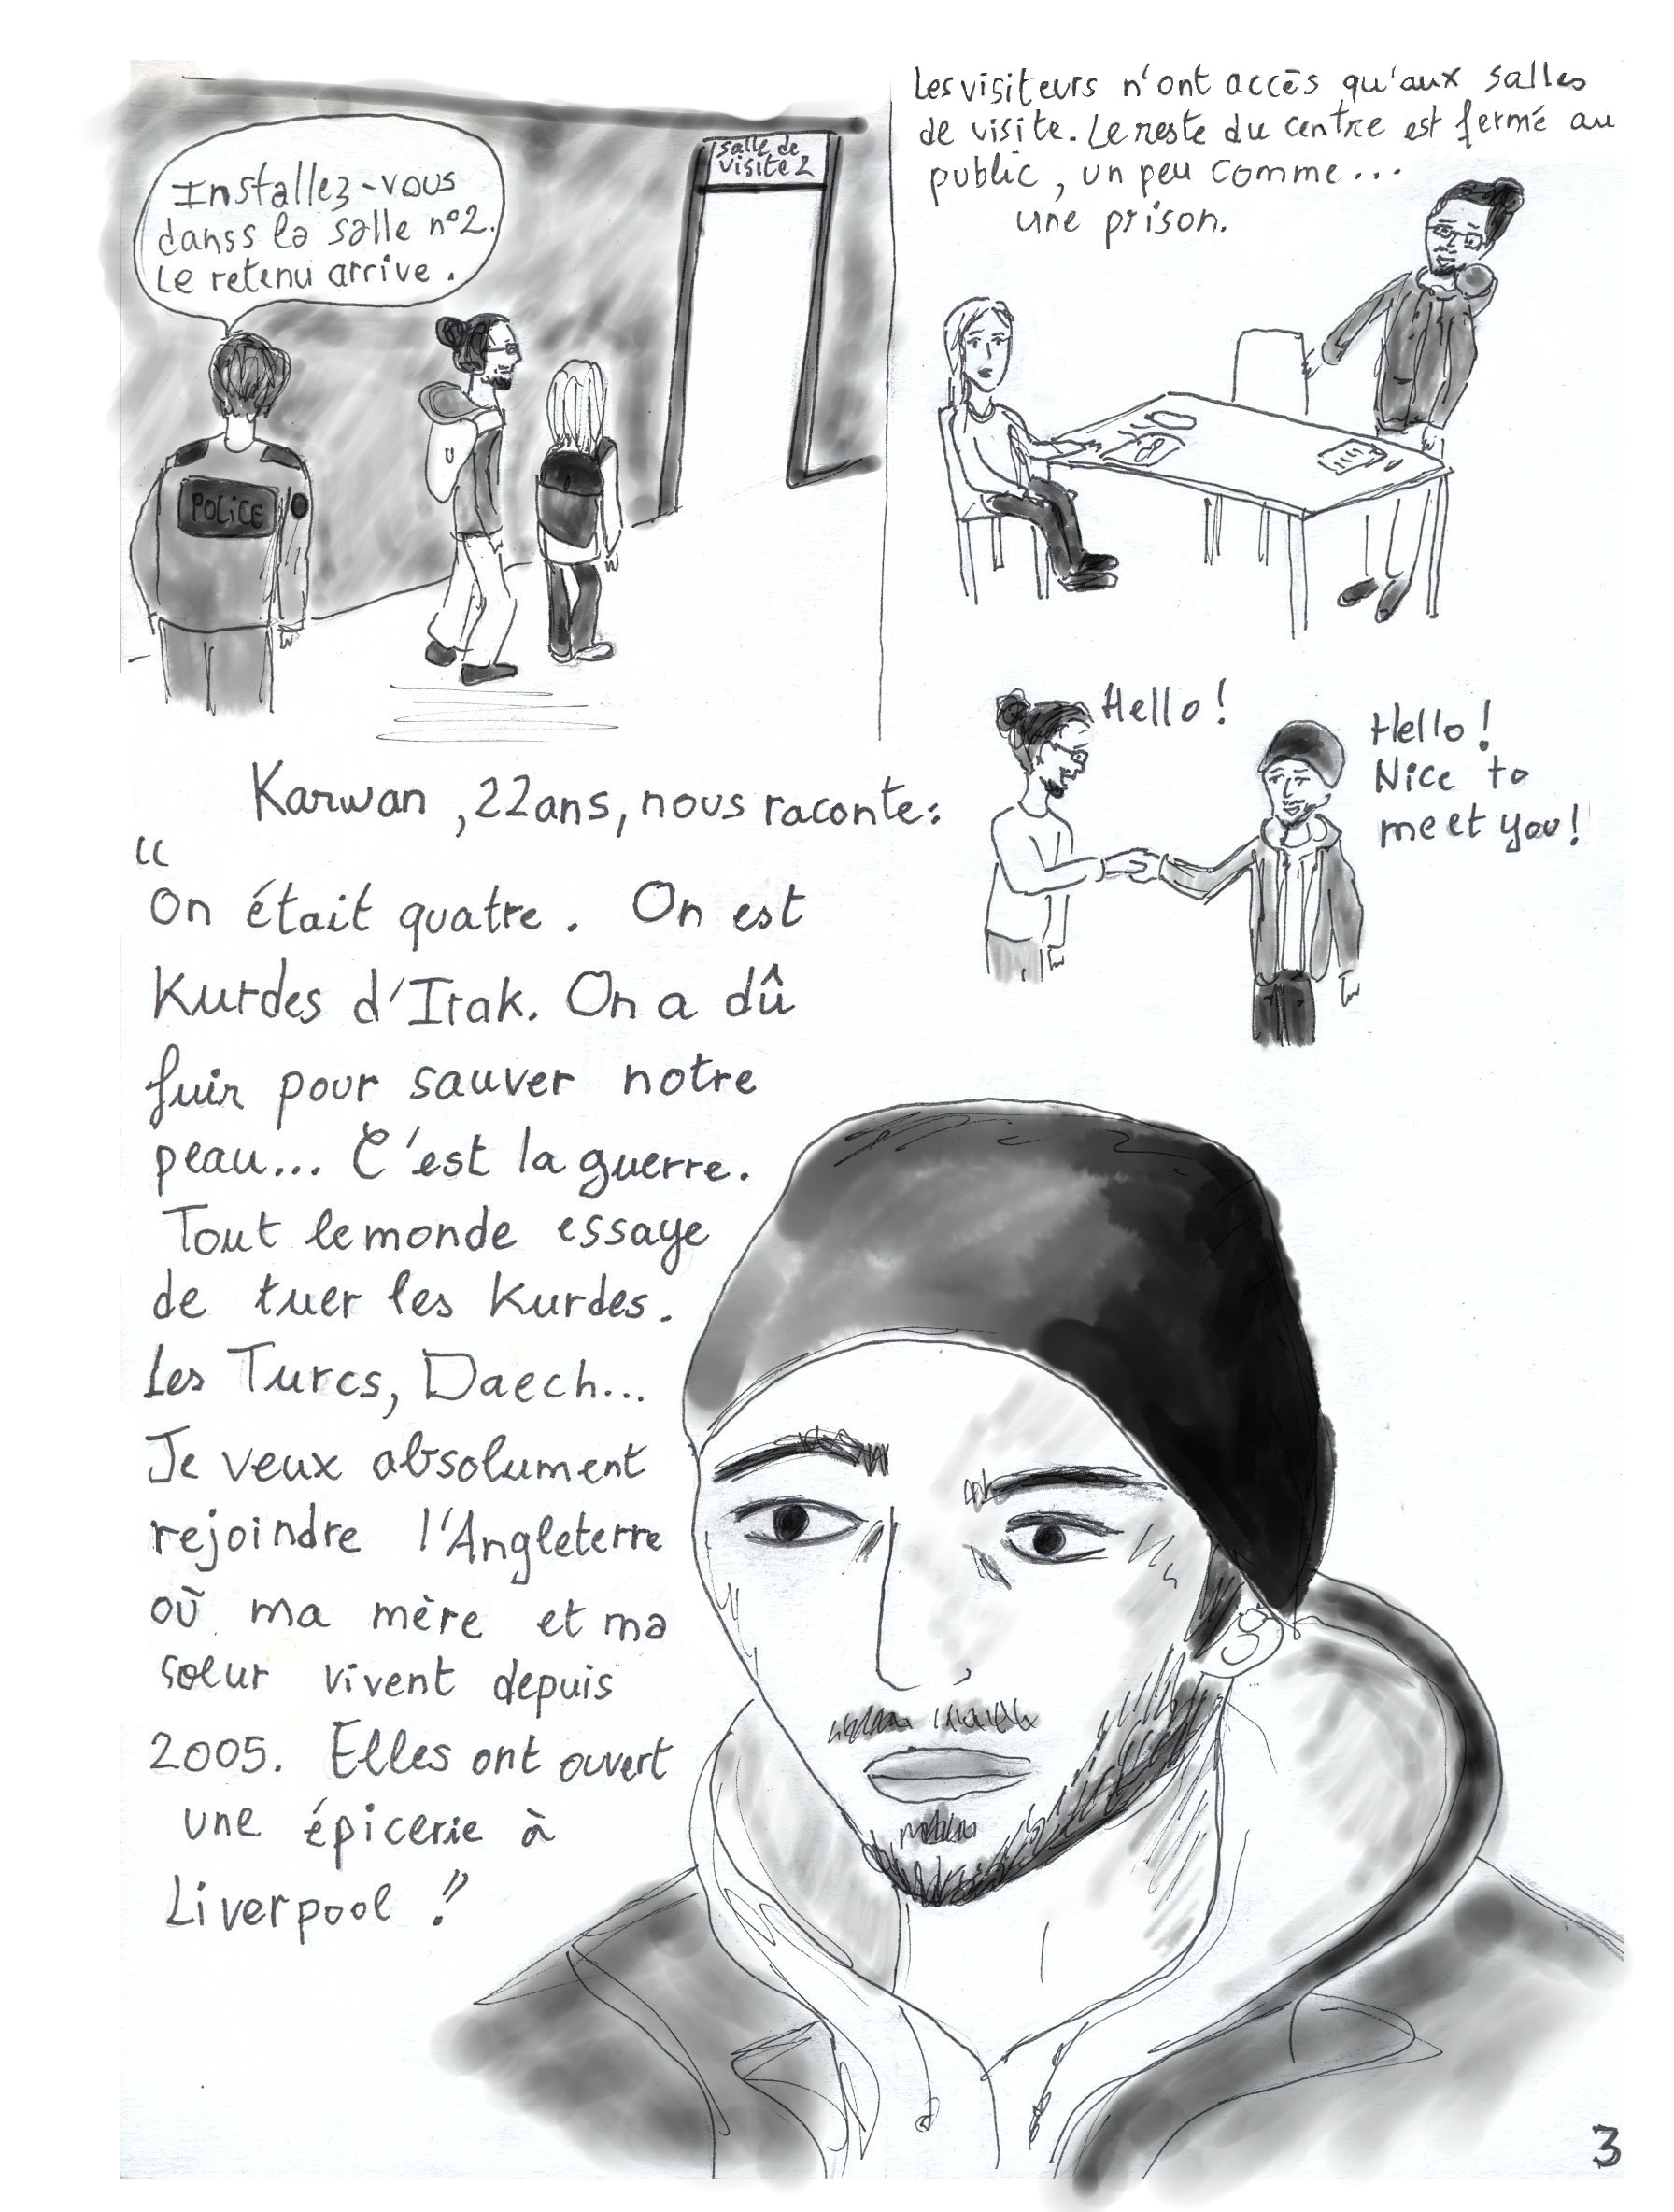 Installez-vous
danss la salle n°2.
Le retenu arrive.
POLICE
salle de
visite 2
Les visiteurs n'ont accès qu'aux salles
de visite. Le reste du centre est fermé au
public, un peu comme...
une prison.
Hello!
Hello!
Nice to
meet you!
Karwan, 22 ans, nous raconte:
“
On était quatre. On est
Kurdes d'Irak. On a dû
fuir pour sauver notre
peau... C'est la guerre.
Tout le monde essaye
de tuer les Kurdes.
Les Turcs, Daech...
Je veux absolument
rejoindre l'Angleterre
où ma mère et ma
sœur vivent depuis
2005. Elles ont ouvert
une épicerie à
Liverpool!”
3